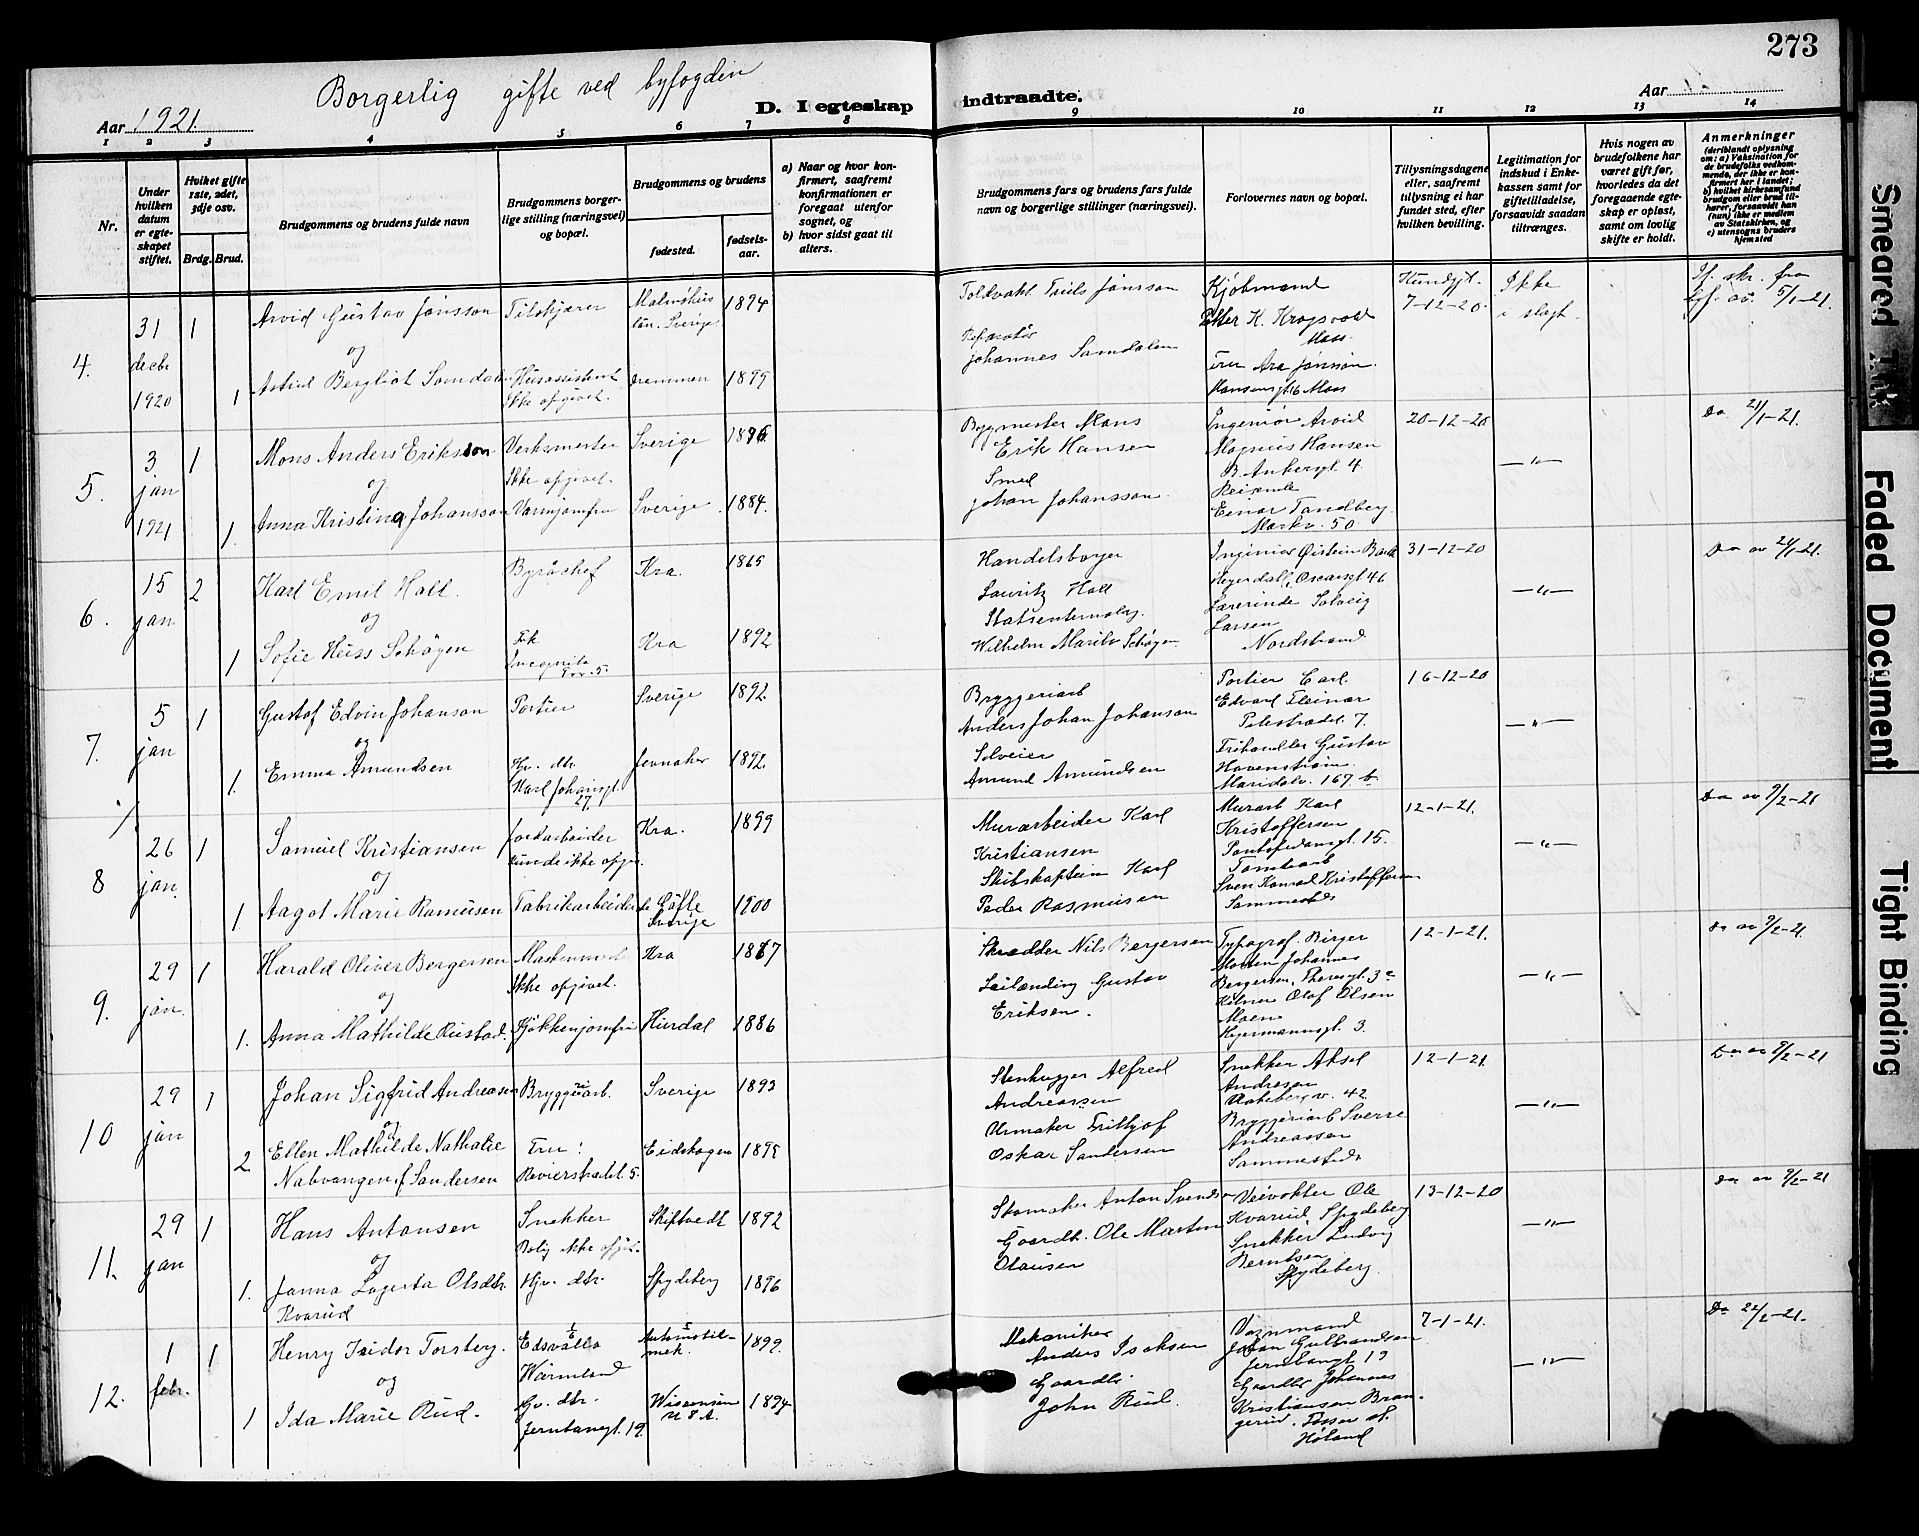 273
Borgerlig gifte ved byfogden
D. I egteskap indtraadte.
Aar 1921
Aar
1 2 3 4 5 6 7 8 9 10 11 12 13 14
Nr.
Under hvilken datum er egteskapet stiftet.
Hvilket gifte 1ste, 2det, 3dje osv.
Brdg. Brud.
Brudgommens og brudens fulde navn
Brudgommens borgerlige stilling (næringsvei) og bopæl.
Brudgommens og brudens
fødested.
fødselsaar.
a) Naar og hvor konfirmert, saafremt konfirmationen er foregaat utenfor sognet, og
b) hvor sidst gaat til alters.
Brudgommens fars og brudens fars fulde navn og borgerlige stillinger (næringsvei).
Forlovernes navn og bopæl.
Tillysningsdagene eller, saafremt tillysning ei har fundet sted, efter hvilken bevilling.
Legitimation for indskud i Enkekassen samt for giftetilladelse, forsaavidt saadan tiltrænges.
Hvis nogen av brudefolkene har været gift før, hvorledes da det foregaaende egteskap er opløst, samt om lovlig skifte er holdt.
Anmerkninger
(deriblandt oplysning om: a) Vaksination for de brudefolks vedkommende, der ikke er konfirmert her i landet; b) hvilket kirkesamfund brudgom eller brud tilhører, forsaavidt han (hun) ikke er medlem av Statskirken, og c) utensogns bruders hjemsted
4. 31 decbr 1920 1 Arvid Gustav Jönsson
Malmöhus län. Sverige 1894
Toldvakt Truls Jönsson
Kjöbmand
Petter K. Krogsvold
Moss.
7-12-20
Ikke i slegt.
5/1-21.
og
1 Astrid Bergliot Samdalen Husassistent Drammen 1899
Ikke opgivet.
Reparatör
Johannes Samdalen
Fru Ara Jönsson.
Moss
5. 3 jan 1921 1 Mons Anders Eriksson Verksmester Sverige
Ikke opgivet.
Bygmester Mons
Erik Hansen
Ingeniør Arvid
Magnus Hansen
20-12-20
—"—
Do 21/1-21.
og
1. Anna Kristina Johansson Varmjomfru Sverige 1884.
Smed
Johan Johansson.
Reisende
Einar Tandberg
Markv. 50
6. 15 jan 2 Karl Emil Holl. Byråchef Kra. 1865
Handelsborger
Lauritz Holl
Ingeniør Øistein
Oscarsgt 46
31-12-20
—"—
Do av 21/1-21.
og
1 Sofie Huss Schöyen Frk Kra 1892
Wilhelm Schöyen
Lærerinde Solveig
Larsen
Nordstrand
7. 5 jan 1 Gustaf Edvin Johanson Portier Sverige 1892.
Bryggeriarb
Anders Johan Johanson
Portier Carl
Edvard Steinar
Pilestrædet 7.
16-12-20
—"—
og
1. Emma Amundsen Gv. dtr. Jevnaker 1892.
Karl Johansgt. 27.
Selveier
Amund Amundsen
Gustav
Maridalv. 167 b
8 26 jan. 1 Samuel Kristiansen Jordarbeider Kra. 1899
Murarbeider Karl
Kristiansen
Murarb Karl
Kristoffersen
12-1-21.
—"—
Do av 9/2-21
og
1. Aagot Marie Rasmusen Fabrikarbeider Gäfle Sverige 1900
Skibskaptein Karl
Peder Rasmusen
Tomtearb
Sven Konrad Kristoffersen
Sammesteds
9. 29 jan. 1 Harald Oliver Bergersen Kra
Ikke opgivet.
Skrædder Nils Bergersen
Typograf. Birger
Morten Johannes
Bergersen,
12-1-21.
—"—
Do av 9/2-21.
og
1. Anna Mathilde Rustad. Kjökkenjomfru Hurdal 1886
Leilænding Gustav
Eriksen.
Kelner Olaf Olsen
Moen
Hegermannsgt. 3.
10 29 jan 1 Johan Sigfrid Andreasen Bryggeriarb. Sverige 1893
Stenhugger Alfred
Andreassen
Snekker Aksel
Andresen
42
12-1-21.
—"—
Do av 9/2-21
og
2 Ellen Mathilde Nathalie Fru: Eidskogen
f Sandersen Revierstrædet 5.
Urmaker Fritjof
Oskar Sandersen
Bryggeriarb Sverre
Andreassen
Sammesteds
11. 29 jan 1 Hans Antonsen Snekker Skiptvedt 1892
Bolig ikke opgit.
Skomaker Anton Svendsen
Veivokter Ole
Kvarud, Spydeberg
13-12-20
—"—
Do av 9/2-21
og
1. Janna Lagerta Olsdtr. Gv. dtr. Spydeberg 1896
Kvarud
Gaardbr. Ole Martin
Olausen
Snekker Ludvig
Berntsen
Spydeberg.
12. 1 febr. 1 Henry Isidor Forsberg. Edsvalla Automobilmek. 1899.
Wärmland
Mekaniker
Anders Isaksen
Vognmand
Johan Gulbrandsen
Jernbanegt 19
7-1-21.
—"—
Do 22/2-21.
og
1 Ida Marie Rud. Gv. dtr. Wisconsin U S A. 1894
Jernbanegt. 19
Gaardbr.
John Rud.
Gaardbr Johannes
Kristiansen
Høland
Smeared Ink
Faded Document
Tight Binding